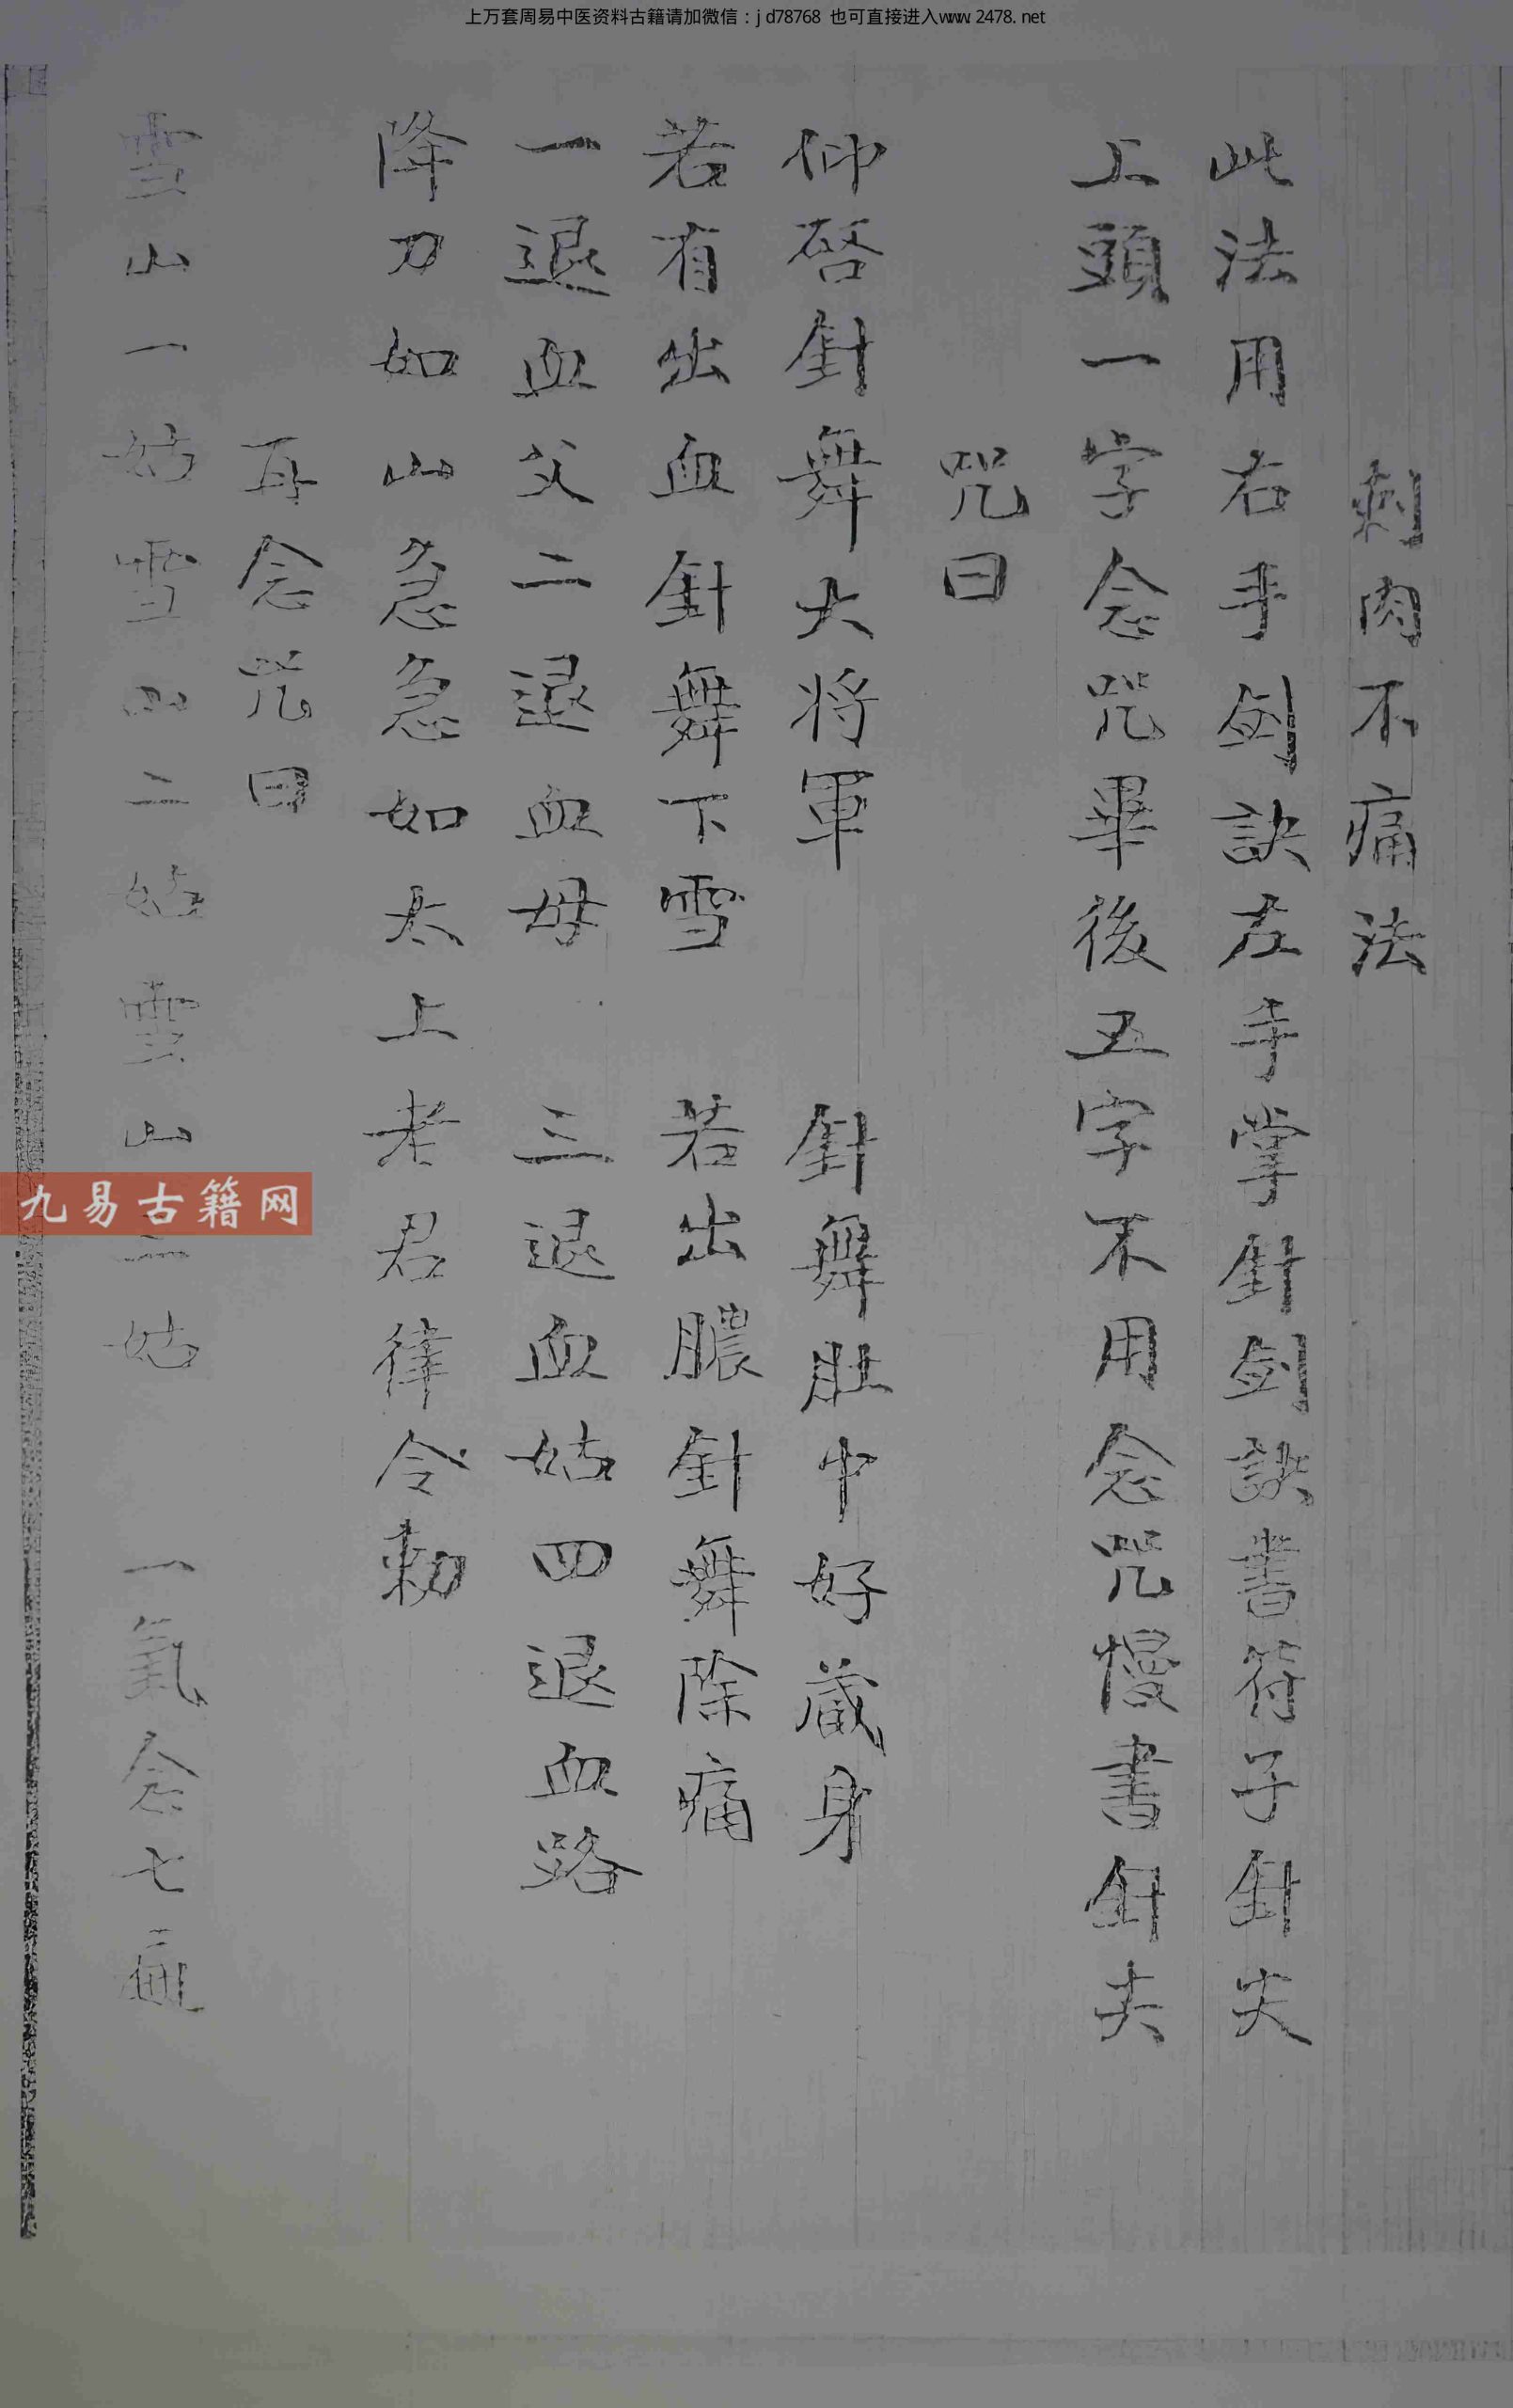 上万套周易中医资料古籍请加微信：jd78768 也可直接进入www.2478.net
刺肉不痛法
此法用右手剑訣左手掌針剑訣書符子針夫
上頭一字念咒畢後五字不用念咒慢書針夫
咒曰
仰啓針舞大将軍 針舞肚中好蔵身
若有出血針舞下雪 若出膿針舞除痛
一退血父二退血母 三退血姑四退血路
降刀如山急急如太上老君律令勅
再念咒曰
雪山一姑雪山二姑雪山三姑 一氣念七遍
九易古籍网